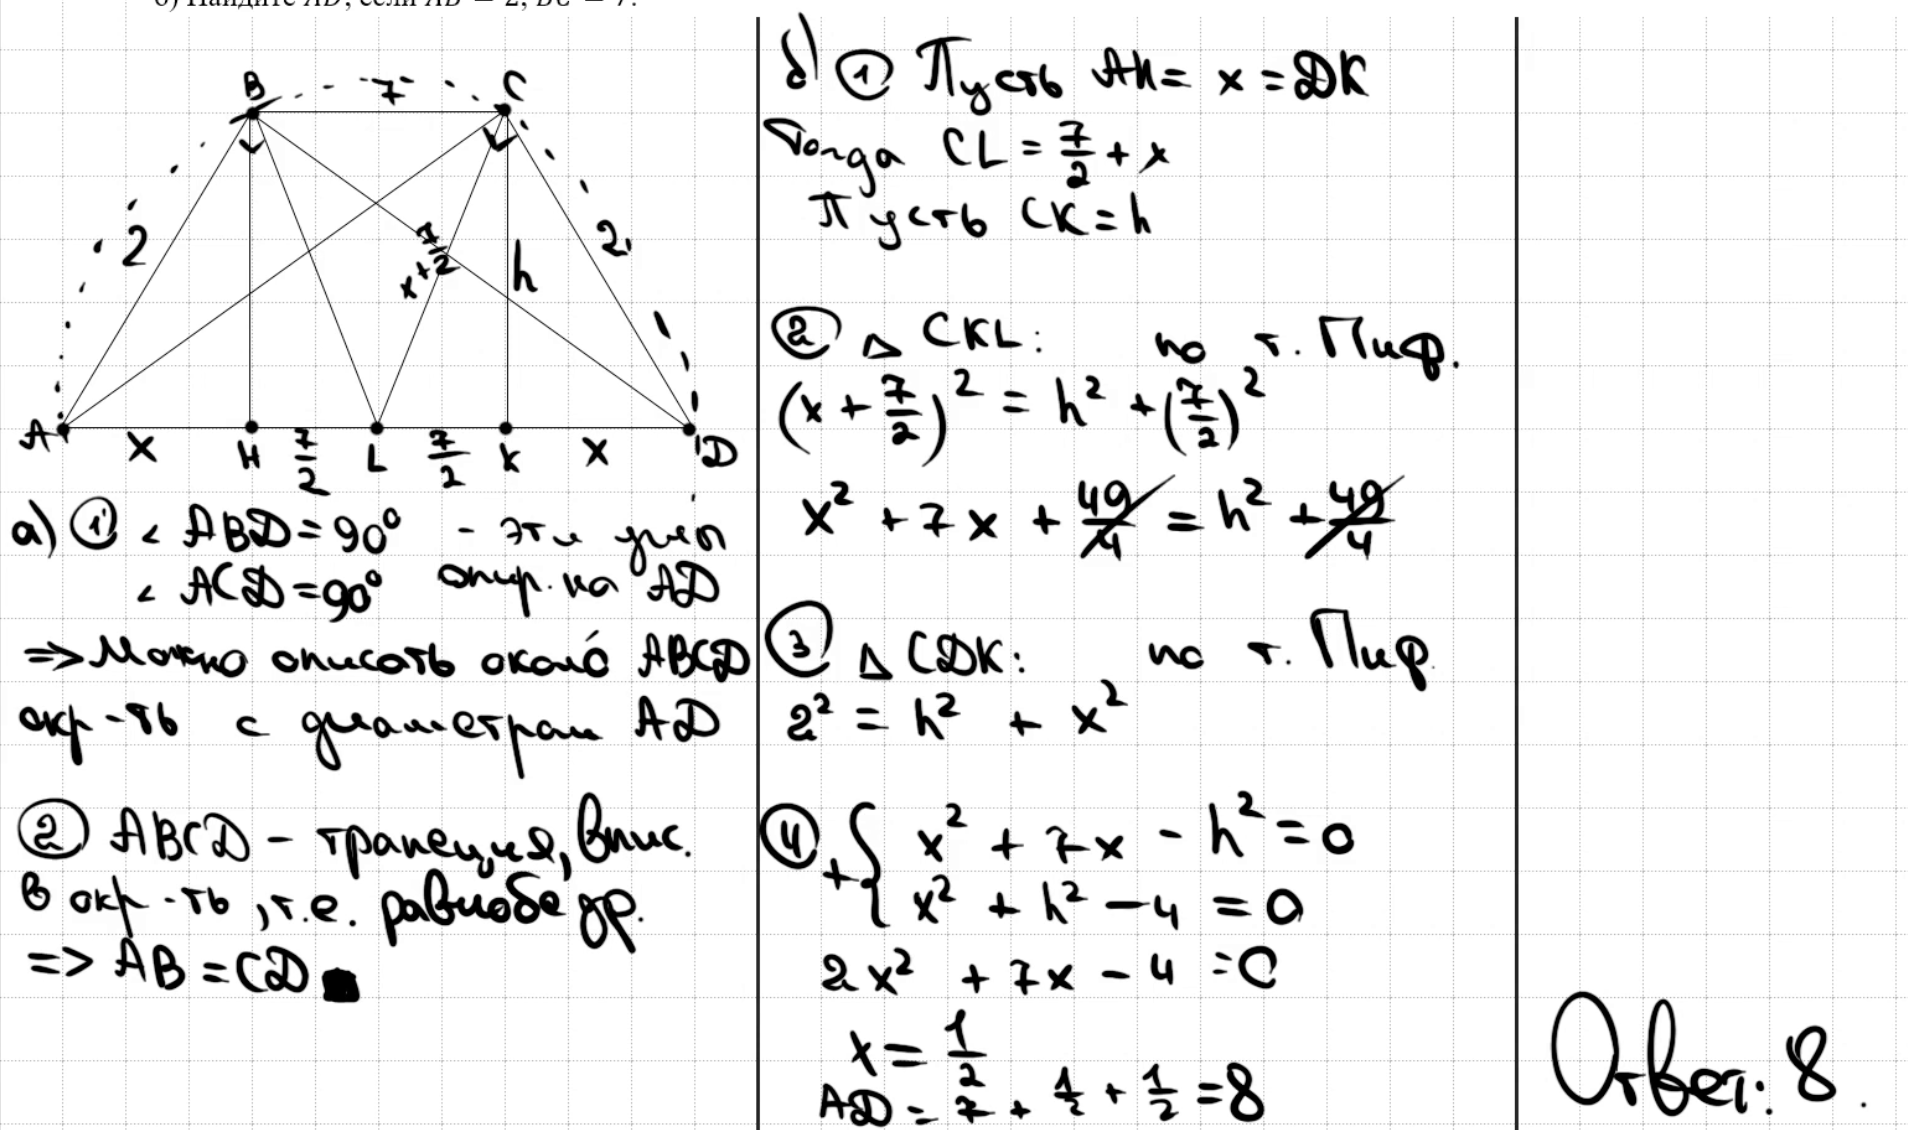 б) Найдите AD, если AB = 2, BC = 7.
B 7 C
2
7/2
x + 
h
2
A x H 7/2 L 7/2 K x D
а) ① ∠ ABD = 90° - эти углы
∠ ACD = 90° опир. на AD
=> Можно описать около ABCD
окр-ть с диаметром AD
② ABCD - трапеция, впис.
в окр-ть, т.е. равнобедр.
=> AB = CD ■
б) ① Пусть AH = x = DK
Тогда CL = 7/2 + x
Пусть CK = h
② △ CKL: по т. Пиф.
(x + 7/2)² = h² + (7/2)²
x² + 7x + 49/4 = h² + 49/4
③ △ CDK: по т. Пиф.
2² = h² + x²
④ + { x² + 7x - h² = 0
x² + h² - 4 = 0
2x² + 7x - 4 = 0
x = 1/2
AD = 7 + 1/2 + 1/2 = 8
Ответ: 8.